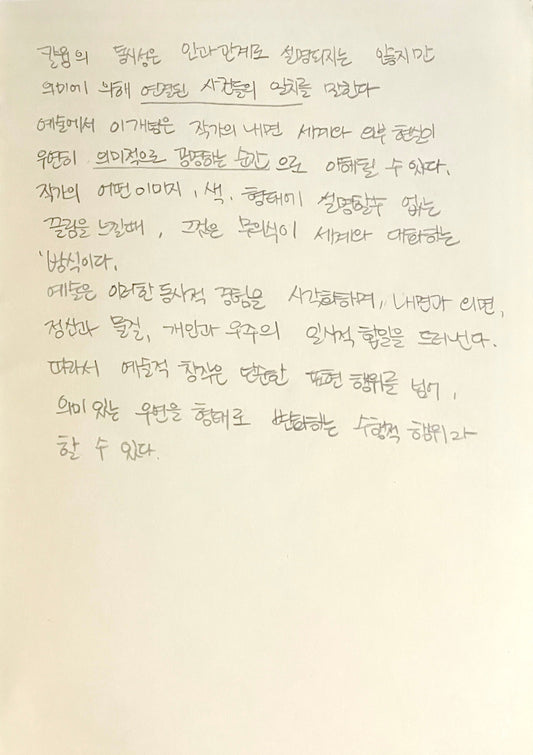 칼융의 동시성은 인과관계로 설명되지는 않지만
의미에 의해 연결된 사건들의 일치를 말한다
예술에서 이개념은 작가의 내면 세계와 외부 현실이
우연히 의미적으로 공명하는 순간으로 이해될 수 있다.
작가의 어떤 이미지, 색, 형태에 설명할수 없는
끌림을 느낄때, 그것은 무의식이 세계와 대화하는
방식이다.
예술은 이러한 동시적 경험을 시각화하며, 내면과 외면,
정신과 물질, 개인과 우주의 일시적 합일을 드러낸다.
따라서 예술적 창작은 단순한 표현 행위를 넘어,
의미 있는 우연을 형태로 변화하는 수행적 행위라
할 수 있다.